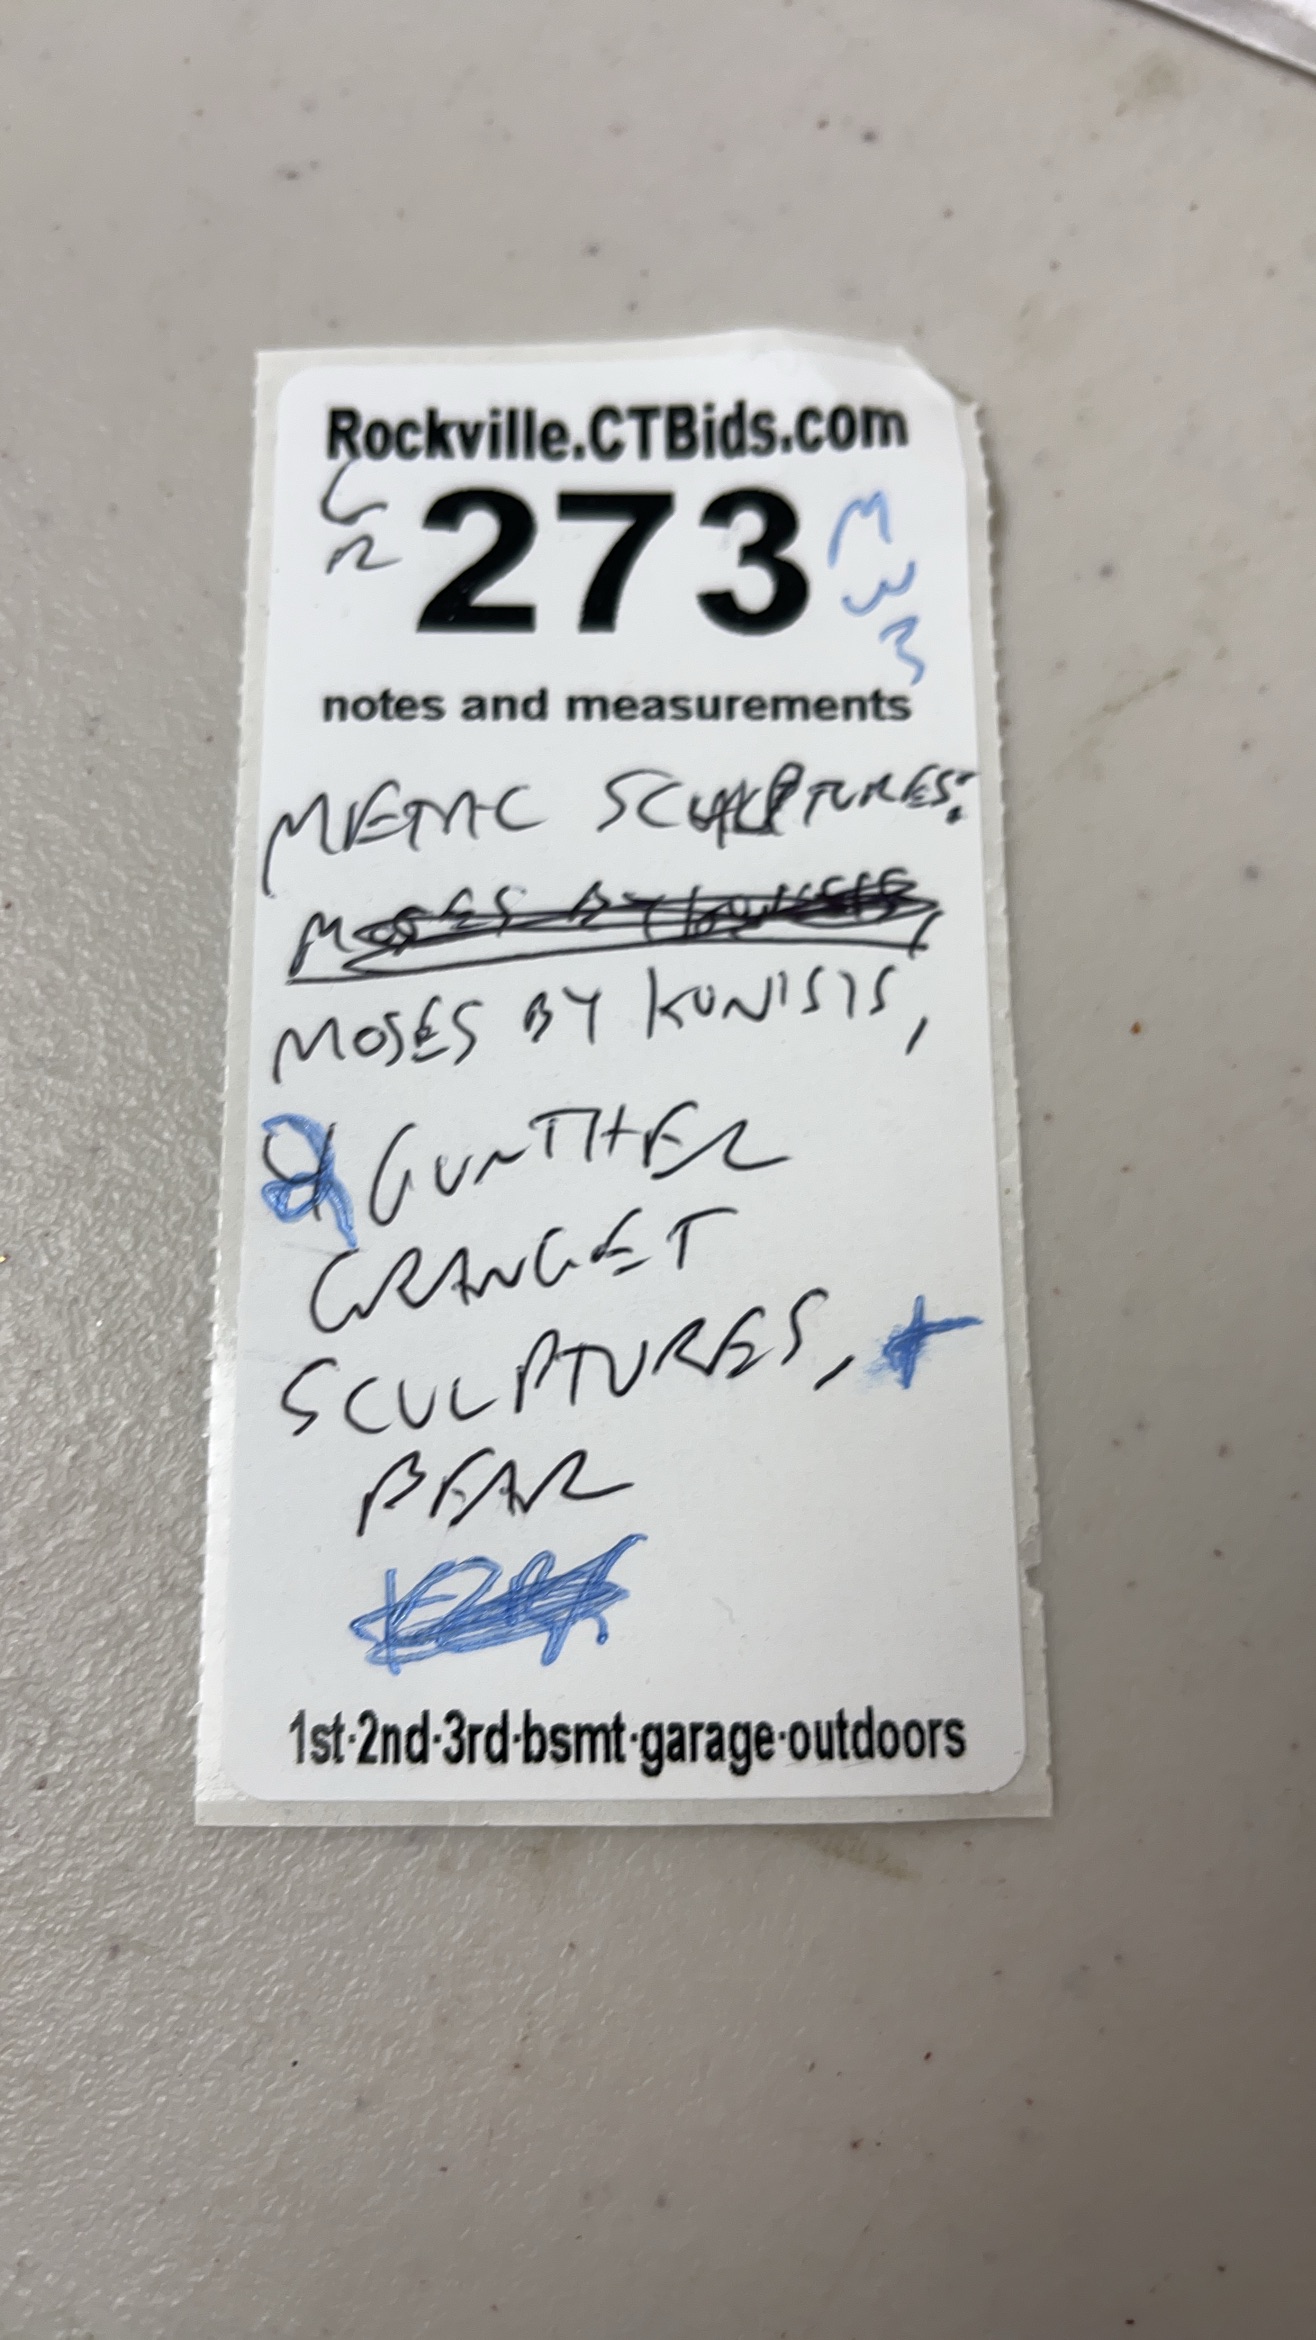 Rockville.CTBids.com
LR 273 MW3
notes and measurements
METAL SCULPTURES:
MOSES BY KUNISIS
MOSES BY KUNISIS,
2 GUNTHER
GRANGET
SCULPTURES, +
BEAR
1st·2nd·3rd·bsmt·garage·outdoors